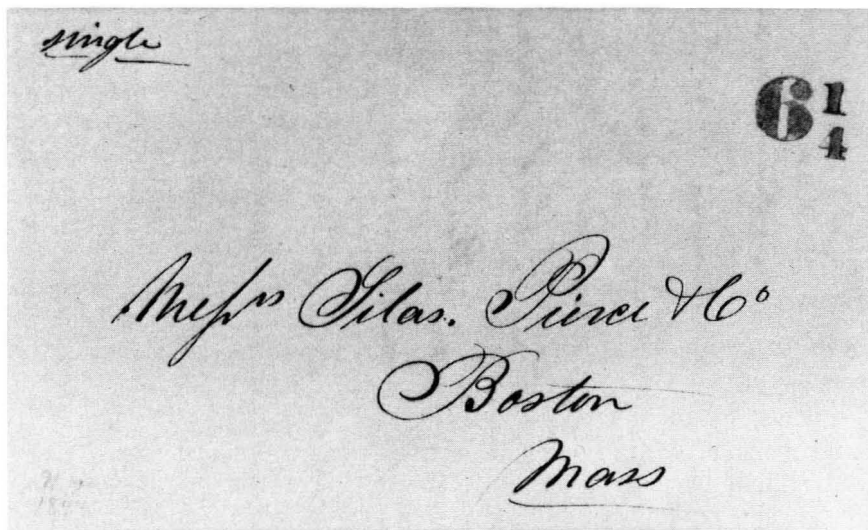 single
6 1/4
Messrs Silas. Pierce & Co
Boston
Mass